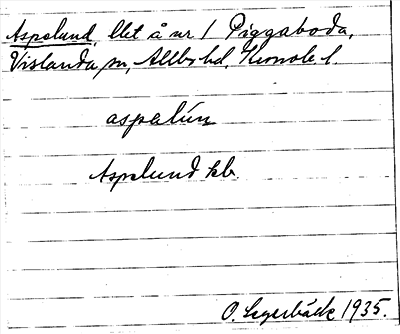 Aspelund, llet å nr 1 Piggaboda,
Vislanda sn, Allbo hd, Kronob. l.
aspəlún
Aspelund lb.
O. Lagerbäck 1935.